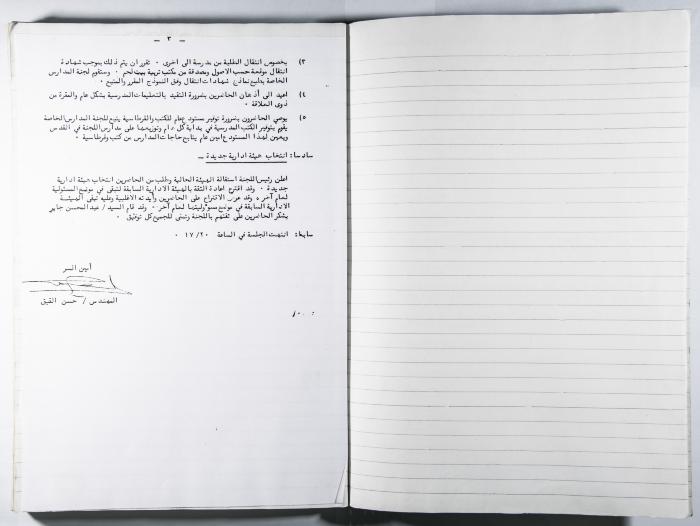 — ٣ —
٣) بخصوص انتقال الطلبة من مدرسة الى اخرى ٠ تقرر ان يتم ذلك بموجب شهادة
انتقال موقعة حسب الاصول ومصدقة من مكتب تربية بيت لحم ٠ وستقوم لجنة المدارس
الخاصة بطبع نماذج شهادات انتقال وفق النموذج المقرر والمتبع ٠
٤) اعيد الى أذهان الحاضرين بضرورة التقيد بالتعليمات المدرسية بشكل عام والمقرة من
ذوى العلاقة ٠
٥) يوصي الحاضرون بضرورة توفير مستودع عام للكتب والقرطاسية يتبع للجنة المدارس الخاصة
يقوم بتوفير الكتب المدرسية في بداية كل عام وتوزيعها على مدارس اللجنة في القدس
ويعين لهذا المستودع امين عام يتابع حاجات المدارس من كتب وقرطاسية ٠
سادسا: انتخاب هيئة ادارية جديدة —
اعلن رئيس اللجنة استقالة الهيئة الحالية وطلب من الحاضرين انتخاب هيئة ادارية
جديدة ٠ وقد اقترح اعادة الثقة بالهيئة الادارية السابقة لتبقى في موضع المسئولية
لعام آخر ٠ وقد عرض الاقتراع على الحاضرين وأيدته الاغلبية وعليه تبقى الهيئة
الادارية السابقة في موضع مسئوليتها لعام آخر ٠ وقد قام السيد / عبد المحسن جابر
بشكر الحاضرين على ثقتهم باللجنة وتمنى للجميع كل توفيق ٠
سابعا: انتهت الجلسة في الساعة ١٧/٢٠ ٠
أمين السر
المهندس / حسن القيق